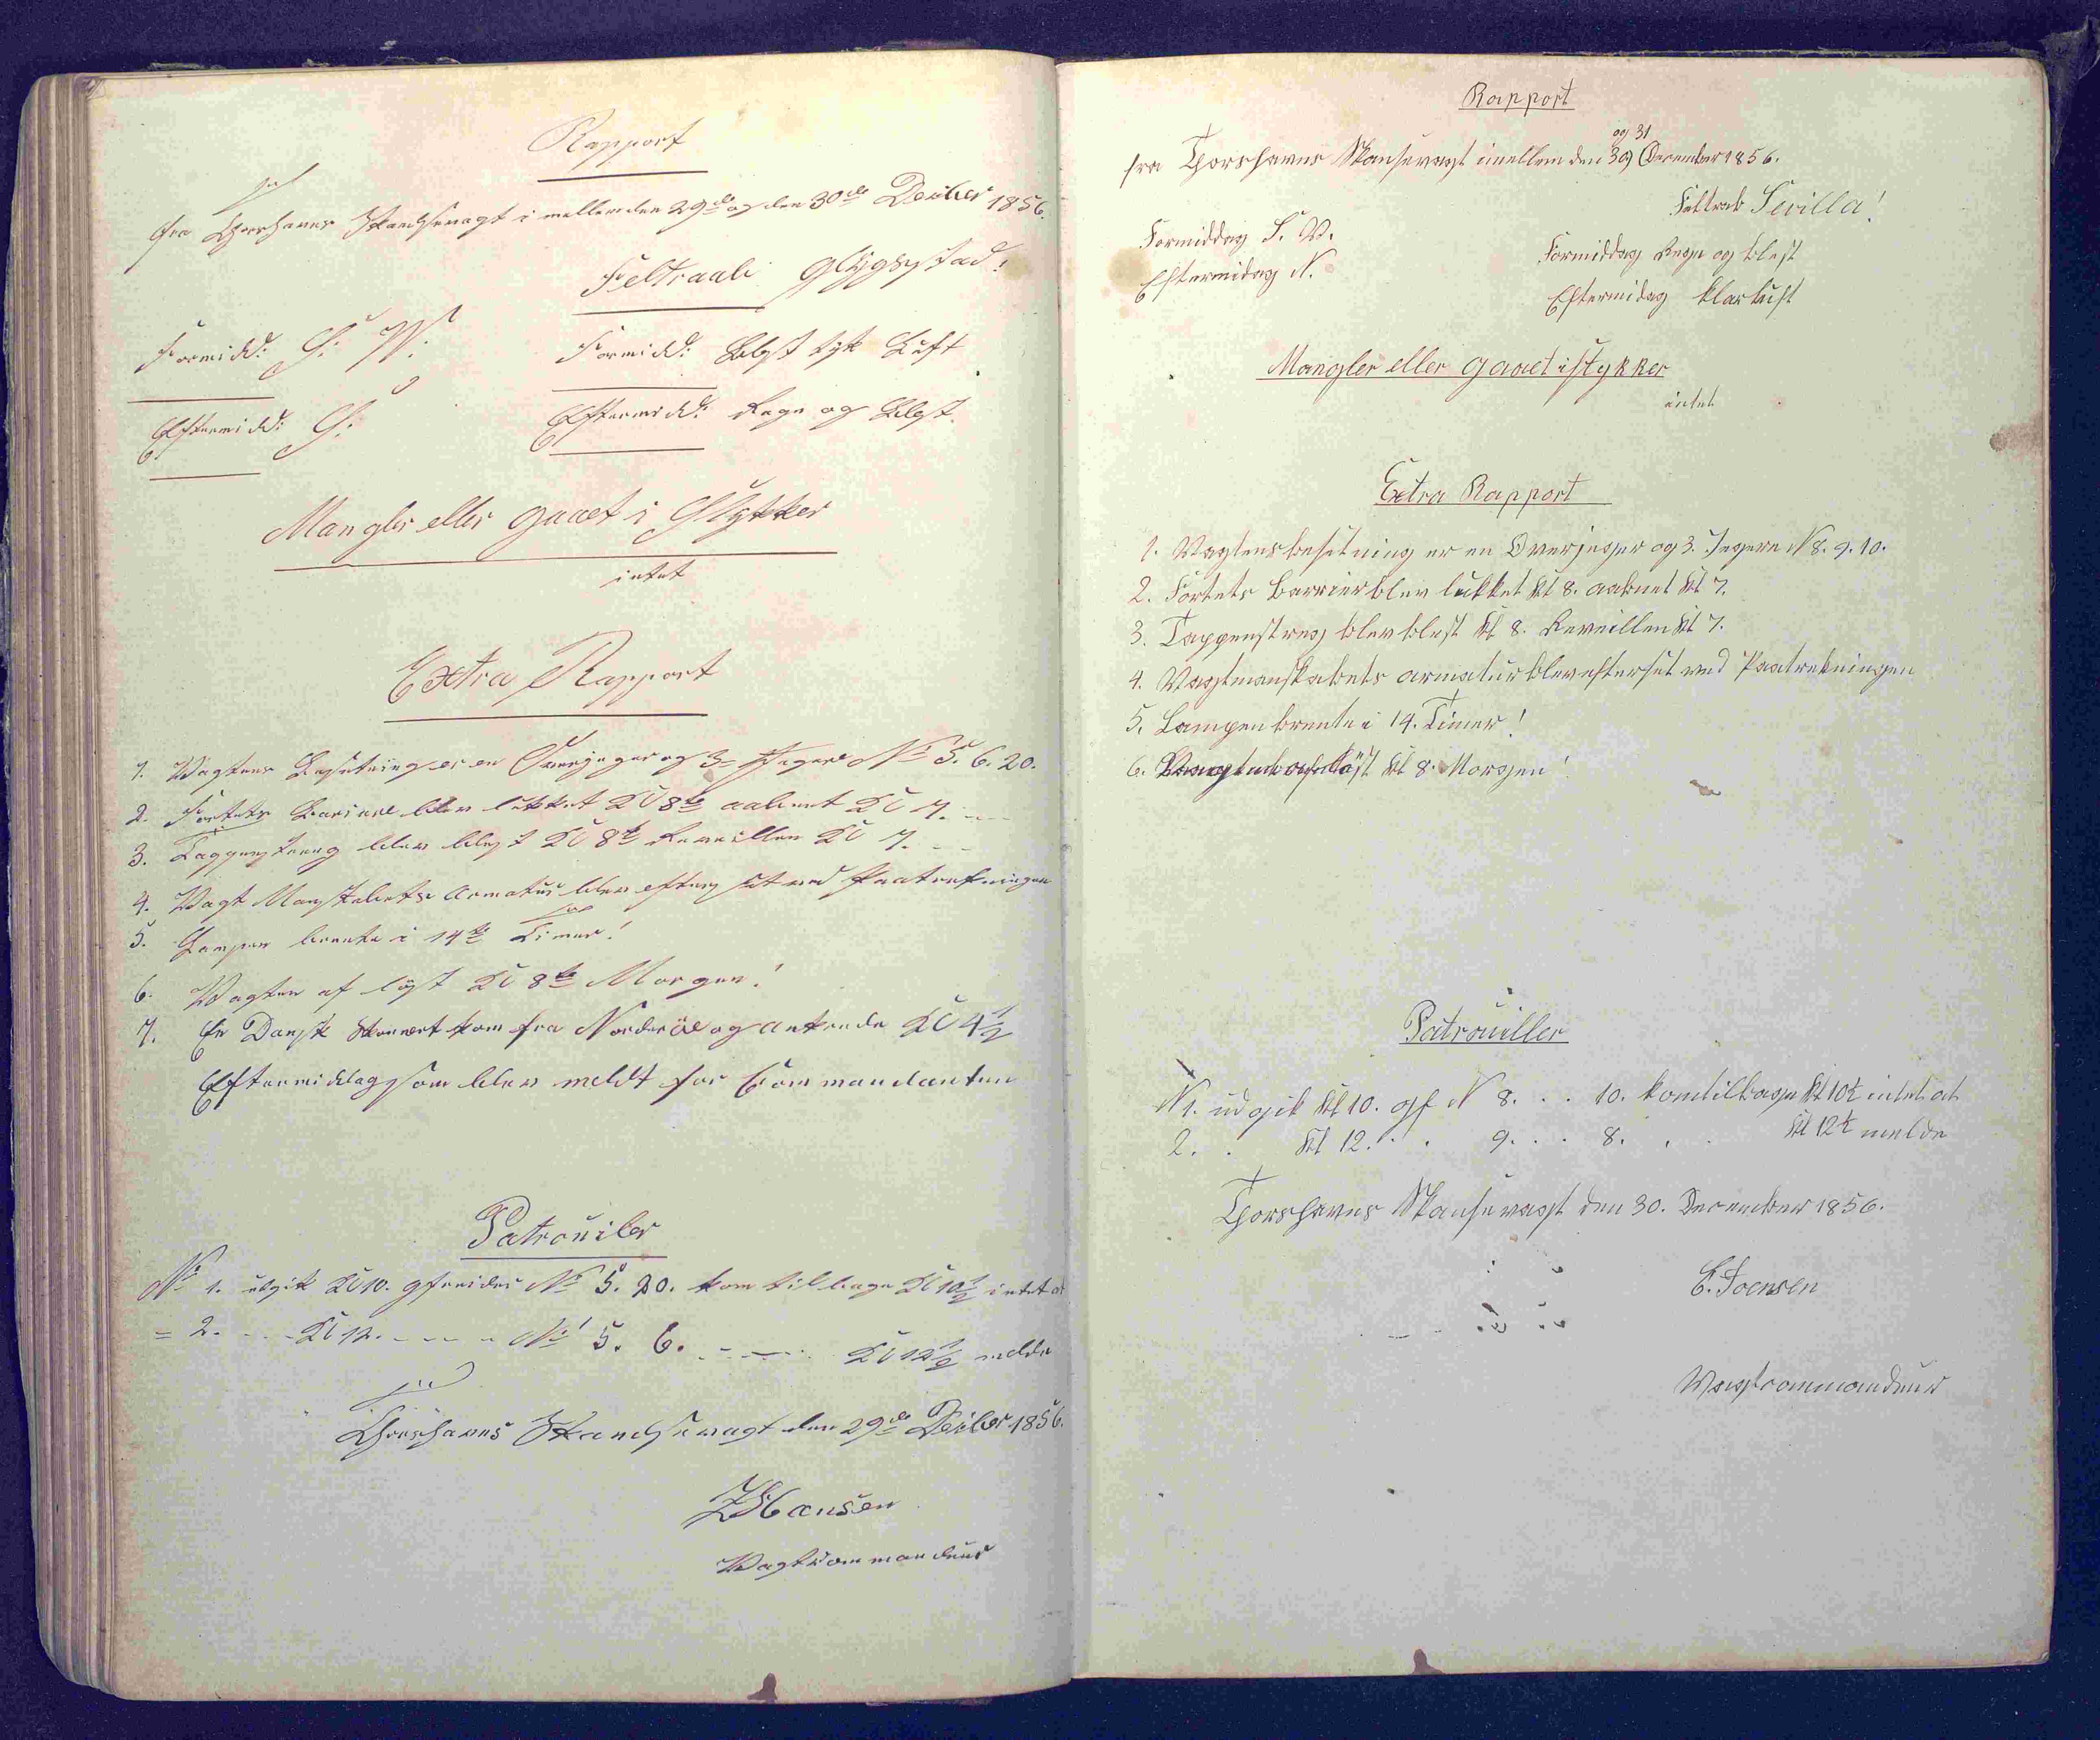 Rapport
fra Thorshavns Skandsevagt i mellem den 29de og den 30de Decber 1856.
Feltraab Glygstad!
Formidd: S: W: Formidd: Blest tyk Luft
Eftermidd: S: Eftermidd: Regn og Blest.
Mangler eller gaaet i Stykker
intet
Extra Rapport
1. Vagtens Besetning er en Overjeger og 3 Jegere No 5. 6. 20.
2. Fortets Bariere blev lukket Kl 8te aabnet Kl 7.
3. Tappenstreeg blev blest Kl 8te Reveillen Kl 7.
4. Vagt Manskabets Armatur blev efterset ved Paatrekningen
5. Lampen brente i 14te Timer!
6. Vagten af löst Kl 8te Morgen!
7. En Dansk Skonnert kom fra Norderöe og ankrede Kl 4½
Eftermiddag som blev meldt for Commandanten
Patrouiler
No 1. udgik Kl 10. gfreider No 5. 20. kom tilbage Kl 10½ intet at
= 2. - - - Kl 12. - - - - No 5. 6. - - - - Kl 12½ melde
Thorshavns Skandsevagt den 29de Decber 1856.
Hansen
Vagtcommandeur
Rapport
og 31
fra Thorshavns Skansevagt imellem den 30 December 1856.
Feltrab Sevilla!
Formiddag S. W. Formiddag Regn og blest
Eftermidag N. Eftermidag klar luft
Mangler eller gaaet istykker
intet
Extra Rapport
1. Vagtens besetning er en Overjeger og 3. Jegere N 8. 9. 10.
2. Fortets barrier blev lukket kl 8. aabnet kl 7.
3. Tappenstreg blev blest kl 8. Reveillen kl 7.
4. Vagtmanskabets armatur blev efterset ved Paatrekningen
5. Lampen brente i 14. Timer!
6. Vagten afløst kl 8. Morgen!
Patrouiller
N 1. udgik kl 10. gf N 8. . . 10. kom tilbage kl 10½ intet at
2. . kl 12. . . 9. . . 8. . . kl 12½ melde
Thorshavns Skansevagt den 30. December 1856.
C. Joensen
Vagtcommandeur